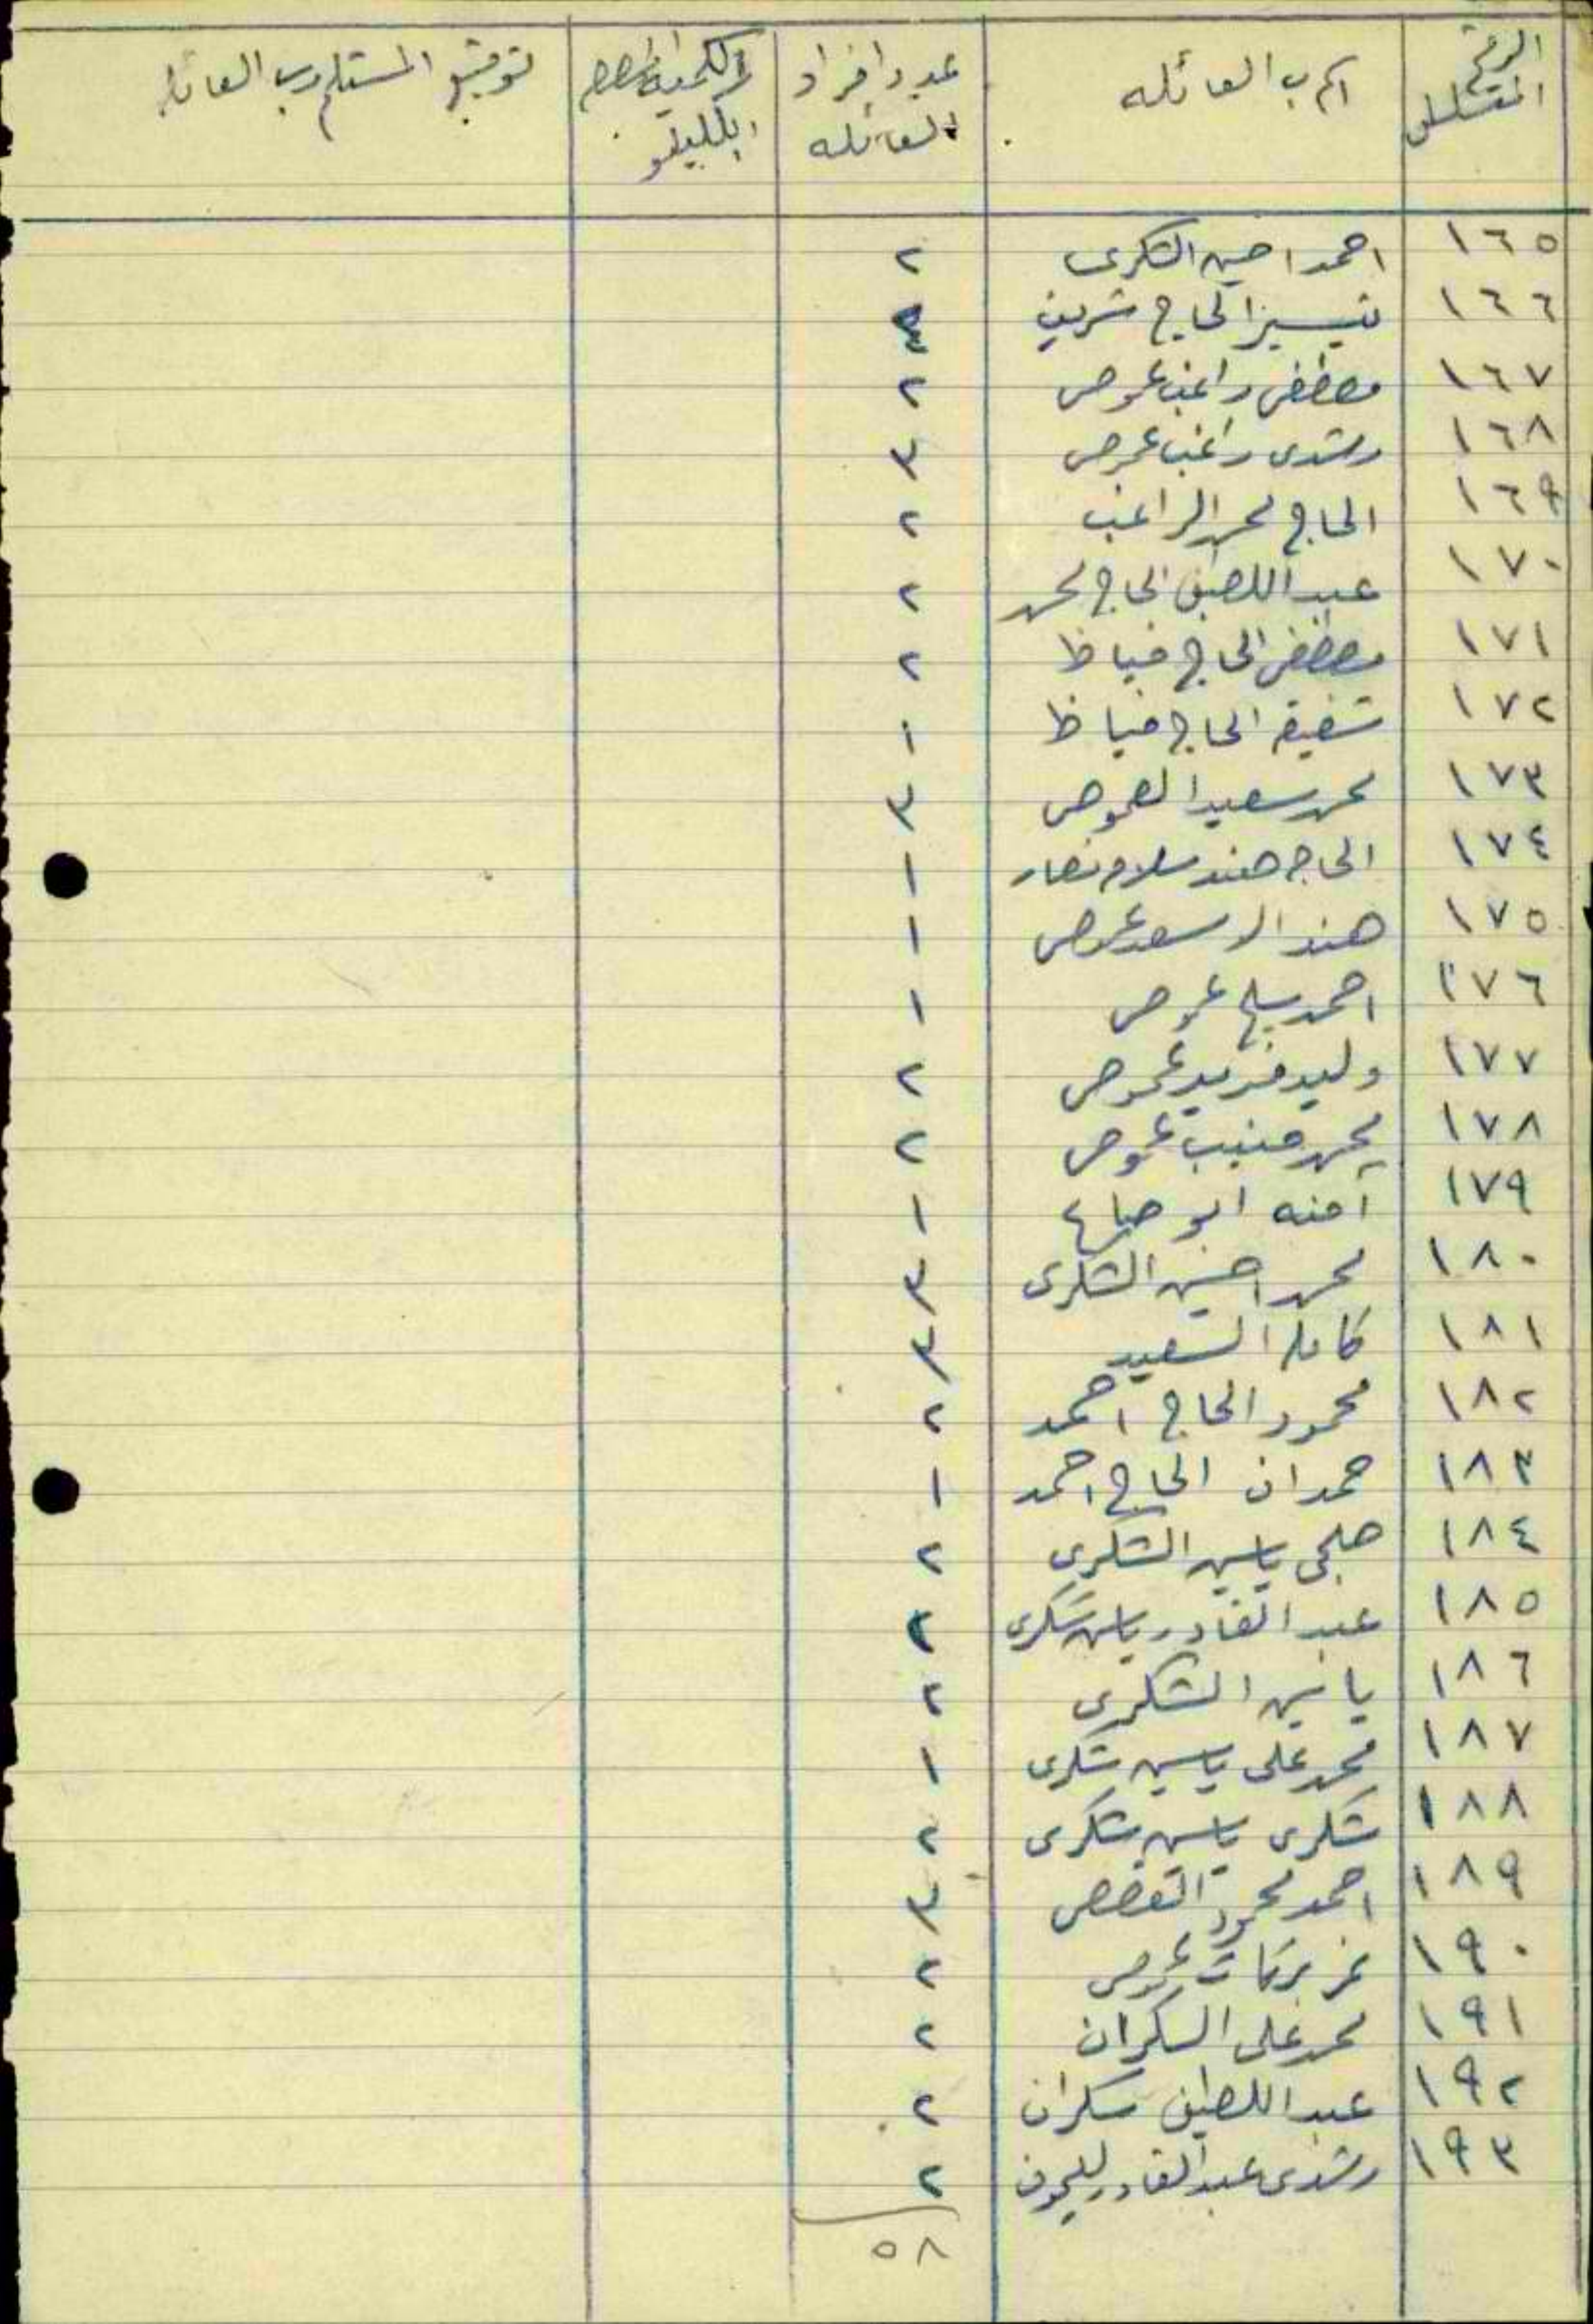 الرقم المتسلسل | اسم رب العائله | عدد افراد العائله | الكميه بالكيلو | توقيع المستلم رب العائله
١٦٥ | احمد احسين الشكرى | ٢
١٦٦ | تيسير الحاج شريف
١٦٧ | مصطفى راغب عموص | ٢
١٦٨ | رشدى راغب عموص | ٣
١٦٩ | الحاج محمد الراغب | ٢
١٧٠ | عبد اللطيف الحاج محمد | ٢
١٧١ | مصطفى الحاج فياظ | ٢
١٧٢ | شفيقه الحاج فياظ | ١
١٧٣ | محمد سعيد العموص | ٣
١٧٤ | الحاجه هند سلامه نصار | ١
١٧٥ | هند الاسعد عموص | ١
١٧٦ | احمد عموص | ١
١٧٧ | وليد فريد عموص | ٢
١٧٨ | محمد منيب عموص | ٢
١٧٩ | آمنه ابو | ١
١٨٠ | محمد احسين الشكرى | ٣
١٨١ | كامله السعيد | ٣
١٨٢ | محمود الحاج احمد | ٢
١٨٣ | حمدان الحاج احمد | ١
١٨٤ | ياسين الشكرى | ٢
١٨٥ | عبد القادر ياسين شكرى | ٢
١٨٦ | ياسين الشكرى | ٢
١٨٧ | محمد على ياسين شكرى | ١
١٨٨ | شكرى ياسين شكرى | ٢
١٨٩ | احمد محمود | ٣
١٩٠ | بركات عموص | ٢
١٩١ | محمد على السكران | ٢
١٩٢ | عبد اللطيف سكران | ٢
١٩٣ | رشدى عبد القادر | ٢
٥٨